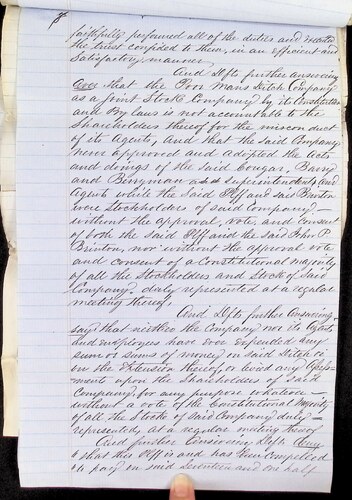 faithfully performed all of the duties and
the trust confided to them, in an efficient and
Satisfactory manner
And Defts further answering
aver that the Poor Mans Ditch Company
as a Joint Stock Company by its Constitution
and By laws is not accountable to the
Shareholders thereof for the misconduct
of its Agents, and that the said Company
never approved and adopted the acts
and doings of the said Cougar, Barry
and as Superintendents and
Agents while the said Plff and said Brinton
were Stockholders of said Company
without the approval, vote, and consent
of both the said Plff and the said John P
Brinton, nor without the approval vote
and consent of a Constitutional majority
of all the Stockholders and Stock of said
Company duly represented at a regular
meeting thereof.
And Defts further Answering
say that neither the Company nor its Agents
and employees have ever expended any
sum or sums of money on said Ditch
or the Extension thereof, or levied any
upon the Shareholders of said
Company, for any purpose whatever
without a vote of the Constitutional Majority
of all the Stock of said Company duly
represented, at a regular meeting thereof
And further Answering Defts deny
that this Plff is and has been compelled
to pay on said Seventeen and one half